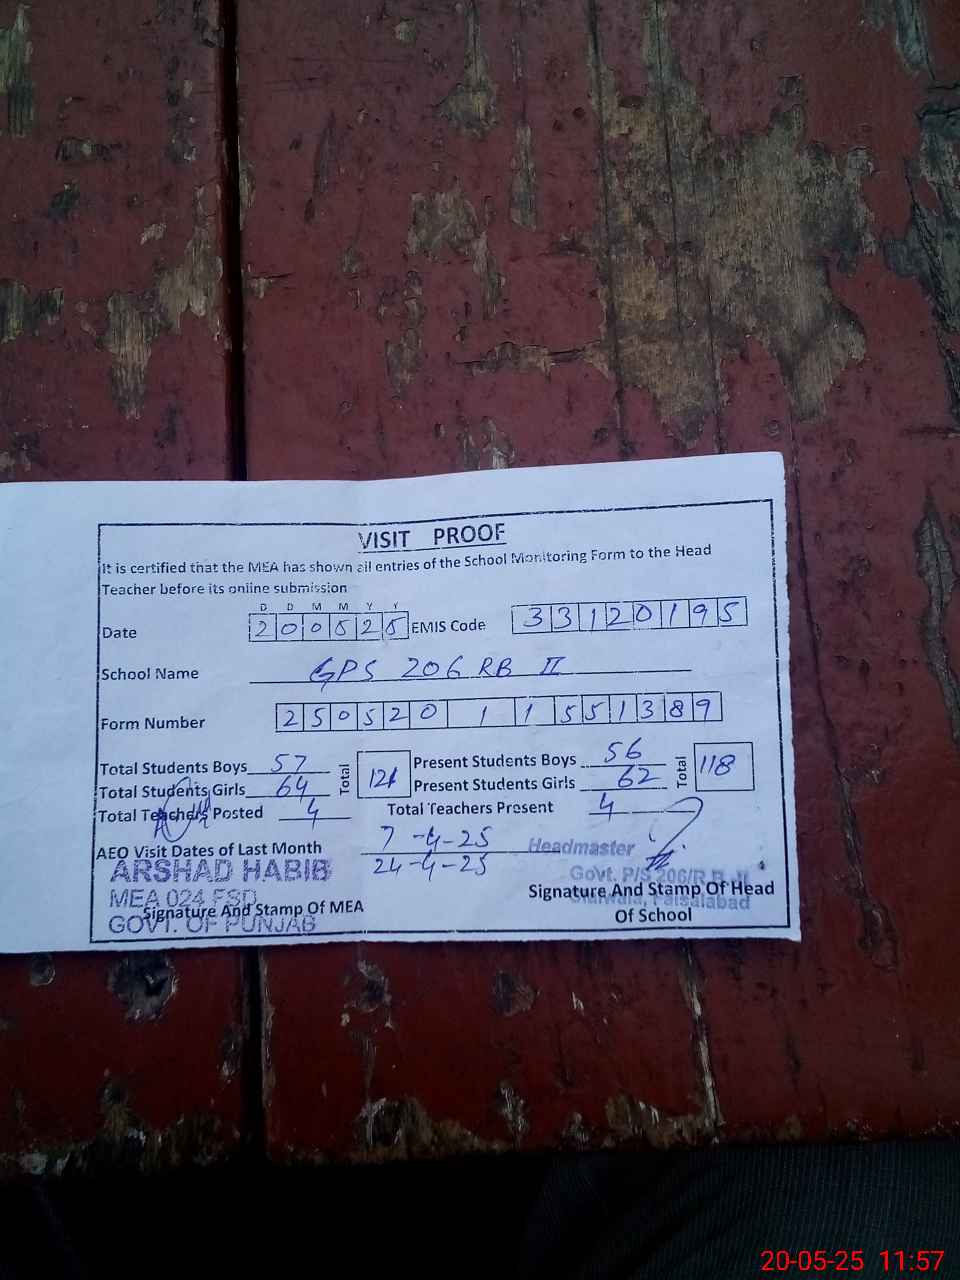 VISIT PROOF
It is certified that the MEA has shown all entries of the School Monitoring Form to the Head
Teacher before its online submission
D D M M Y Y
Date 2 0 0 5 2 5 EMIS Code 3 3 1 2 0 1 9 5
School Name GPS 206 RB II
Form Number 2 5 0 5 2 0 1 1 5 5 1 3 8 9
Total Students Boys 57 Total 121 Present Students Boys 56 Total 118
Total Students Girls 64 Present Students Girls 62
Total Teachers Posted 4 Total Teachers Present 4
AEO Visit Dates of Last Month 7-4-25
24-4-25
Headmaster
Govt. P/S 206/R.B. II
Faisalabad
Signature And Stamp Of Head
Of School
ARSHAD HABIB
MEA 024 FSD
GOVT. OF PUNJAB
Signature And Stamp Of MEA
20-05-25 11:57